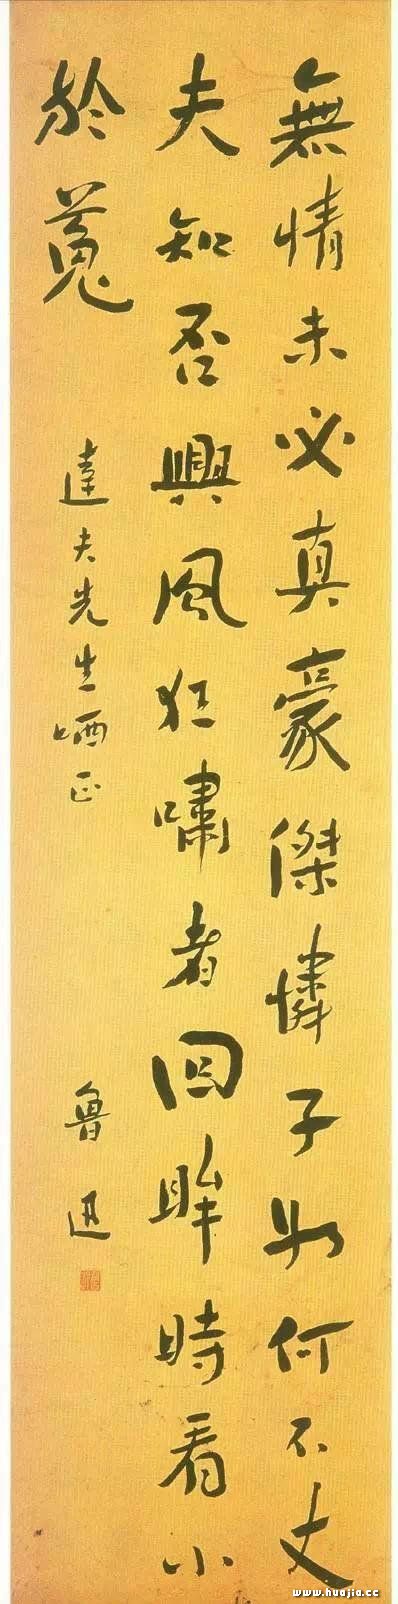 無情未必真豪傑憐子如何不丈
夫知否興風狂嘯者回眸時看小
於菟
達夫先生哂正
魯迅
www.huajia.cc